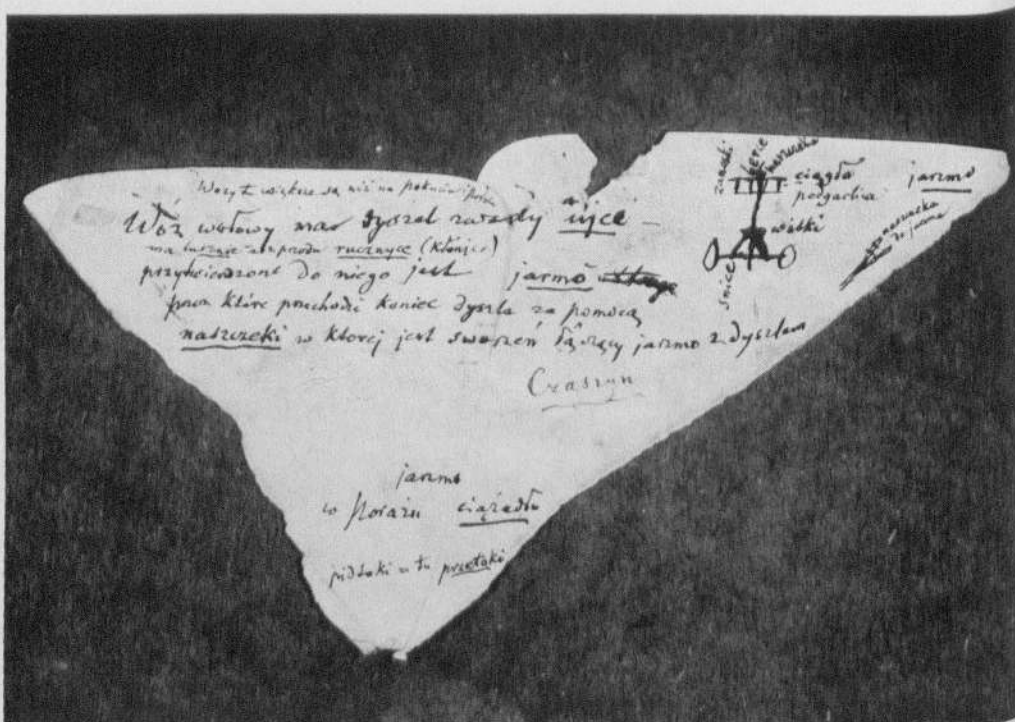 Wozy te większe są niż na
Wóz wołowy ma dyszel zwany ujcē —
ma luśnie a z przodu rucznyce (kłonice)
przytwierdzone do niego jest jarmo
przez które przechodzi koniec dyszla za pomocą
naszczeki w której jest sworzeń łączący jarmo z dyszlem
Czaszyn
jarmo
w Morażu ciążadło
pidłoki a tu przełoki
zanoski
naszczeka
ciągła
podgarlica
jarmo
wilki
śnice
naszczeka
do jarma